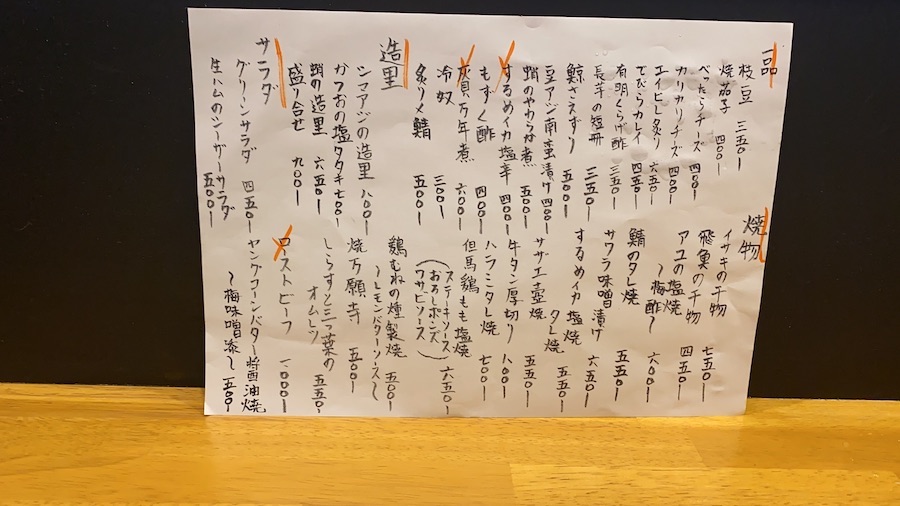 一品
枝豆 三五〇
焼茄子 四〇〇
べったらチーズ 四〇〇
カリカリチーズ 四〇〇
エイヒレ炙り 六五〇
でびらカレイ 四五〇
有明くらげ酢 三五〇
長芋の短冊 三五〇
鯨さえずり 五〇〇
豆アジ南蛮漬け 四〇〇
蛸のやわらか煮 五〇〇
するめイカ塩辛 四〇〇
もずく酢 四〇〇
万年煮 六〇〇
冷奴 三〇〇
炙り〆鯖 五〇〇
造里
シマアジの造里 八〇〇
かつおの塩タタキ 七〇〇
蛸の造里 六五〇
盛り合せ 九〇〇
サラダ
グリーンサラダ 四五〇
生ハムのシーザーサラダ 五〇〇
焼物
イサキの干物 七五〇
飛魚の干物 四五〇
アユの塩焼 六〇〇
〜梅酢〜
鯖のタレ焼 五五〇
サワラ味噌漬け 六五〇
するめイカ 塩焼 タレ焼 五五〇
サザエ壺焼 五五〇
牛タン厚切り 八〇〇
ハラミタレ焼 七〇〇
但馬鶏もも塩焼 六五〇
(ステーキソース
おろしポンズ
ワサビソース)
鶏むねの燻製焼 五〇〇
〜レモンバターソース〜
焼万願寺 五〇〇
しらすと三つ葉の
オムレツ 五五〇
ローストビーフ 一、〇〇〇
ヤングコーンバター醤油焼
〜梅味噌添〜 五〇〇